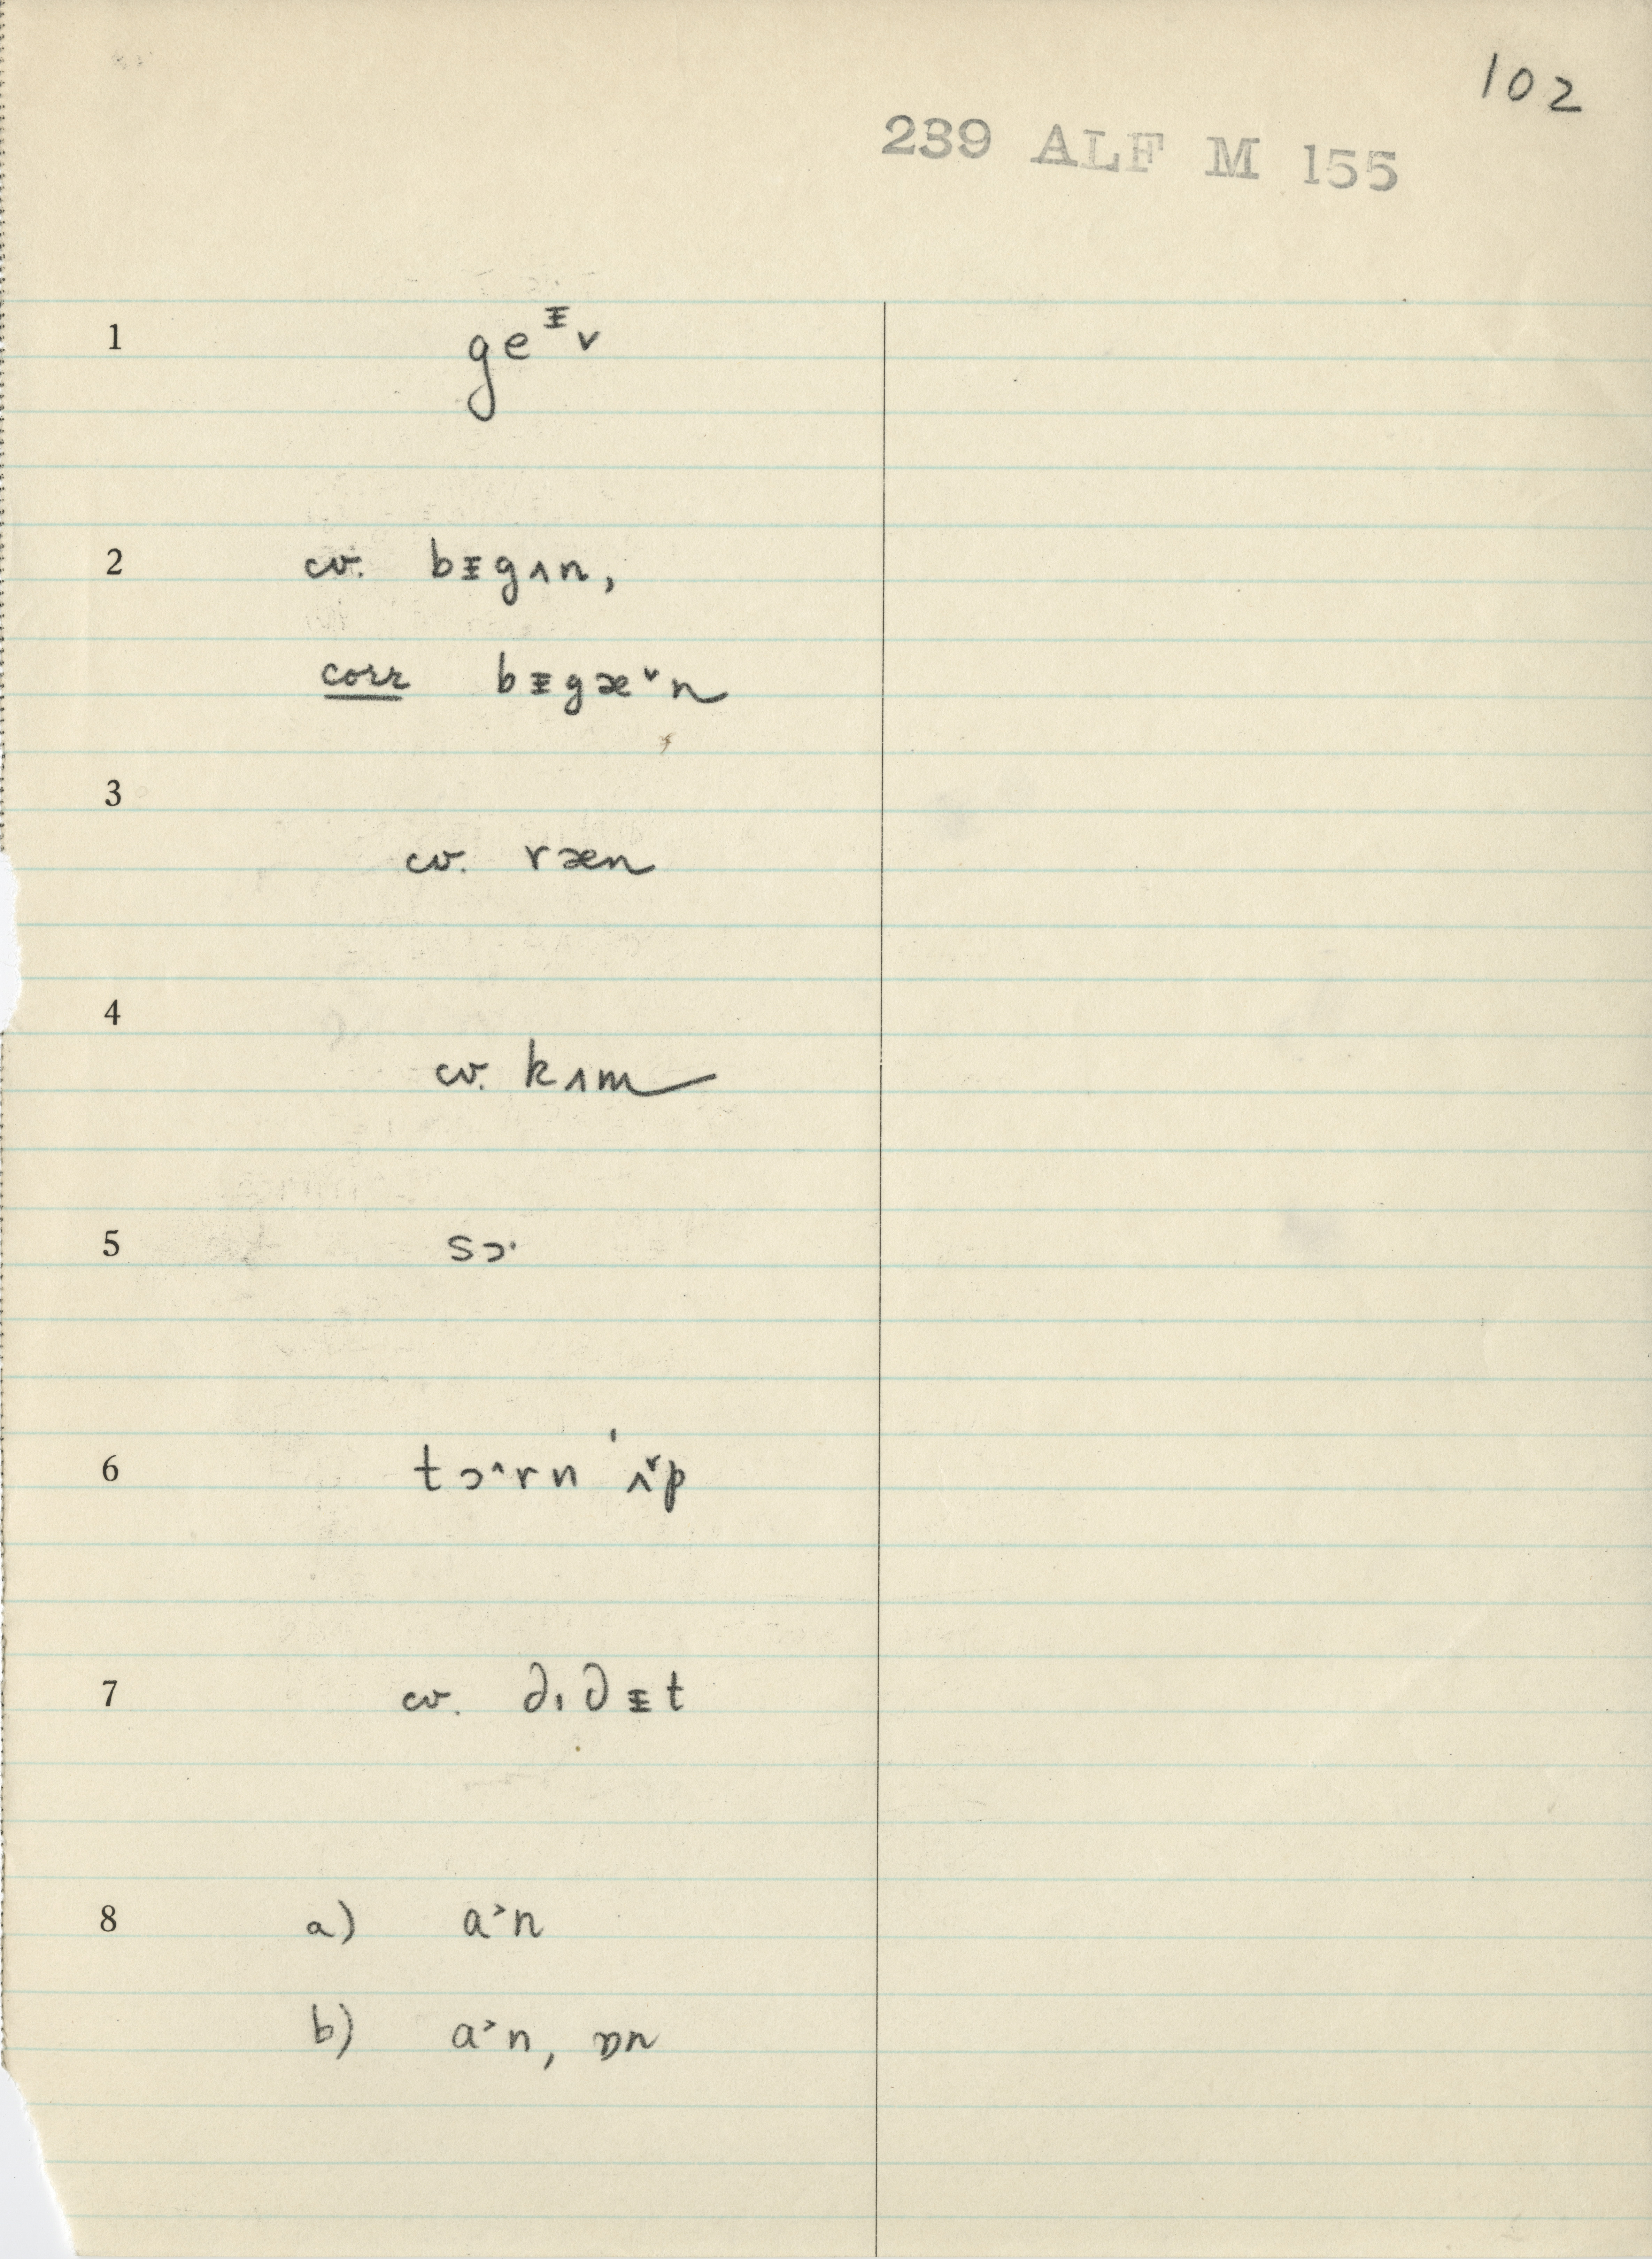 102
239 ALF M 155
1 geᵻv
2 cv. bᵻgʌn,
corr bᵻgæ˅n
3 cv. ræn
4 cv. kʌm
5 sɔ·
6 tɔ·^rn ˈʌ˅p
7 cv. ∂ı∂ᵻt
8 a) a˃n
b) a˃n, ɒn